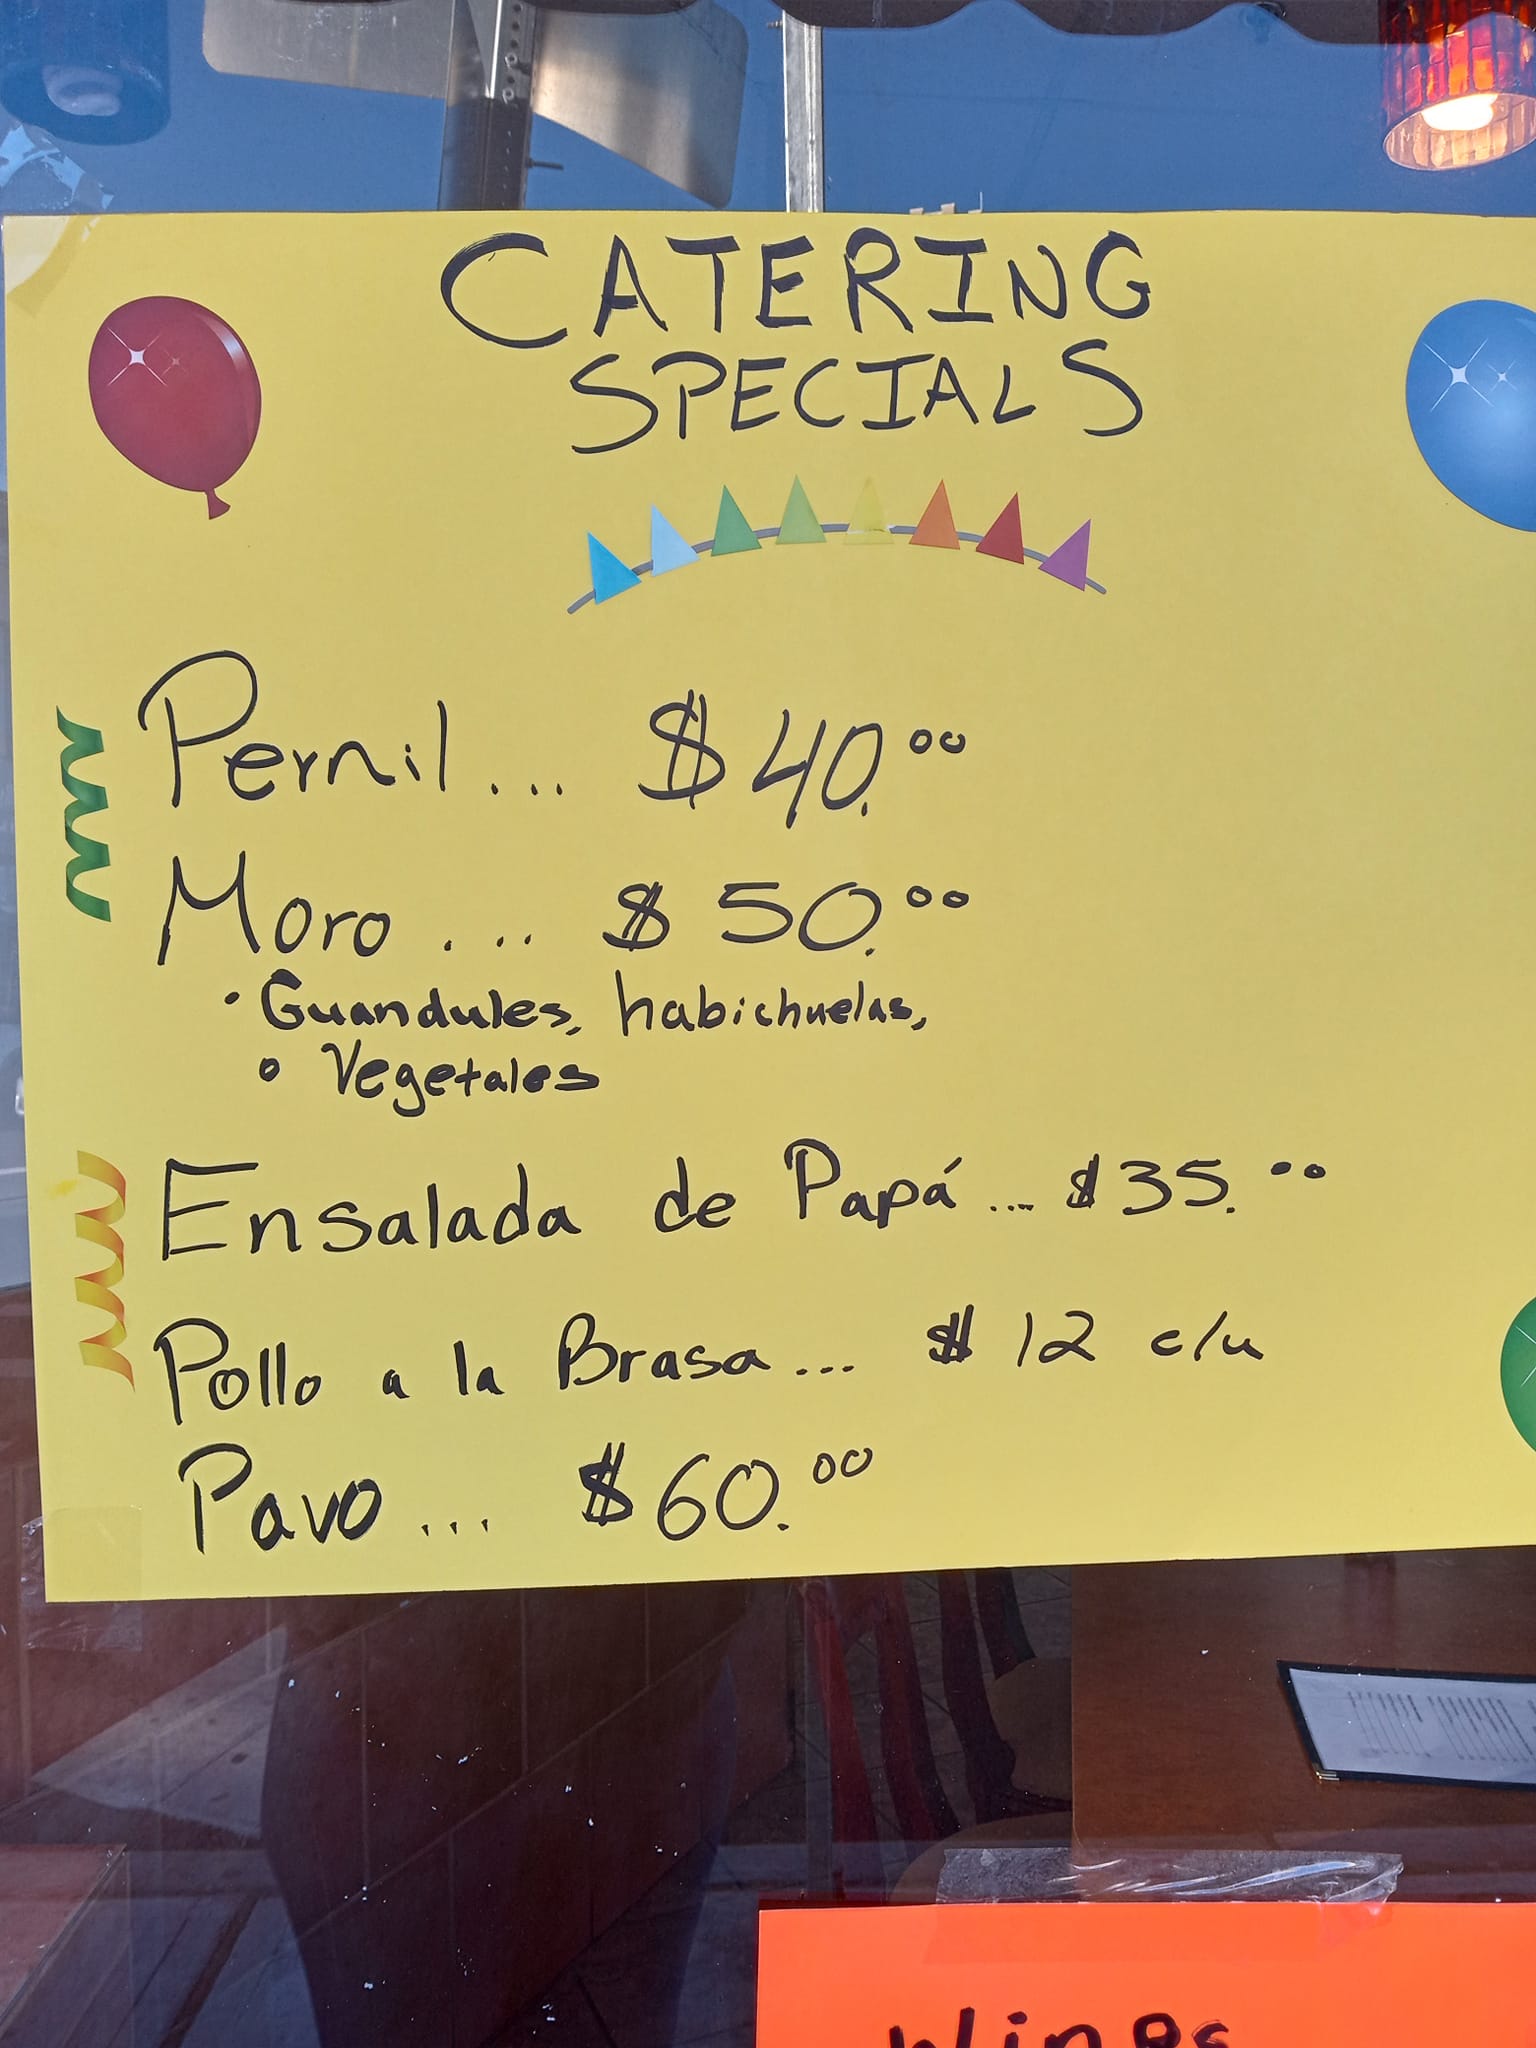 CATERING
SPECIALS
Pernil... $40.00
Moro.... $50.00
• Guandules, habichuelas,
° Vegetales
Ensalada de Papá.... $35.00
Pollo a la Brasa... $12 c/u
Pavo... $60.00
Wings